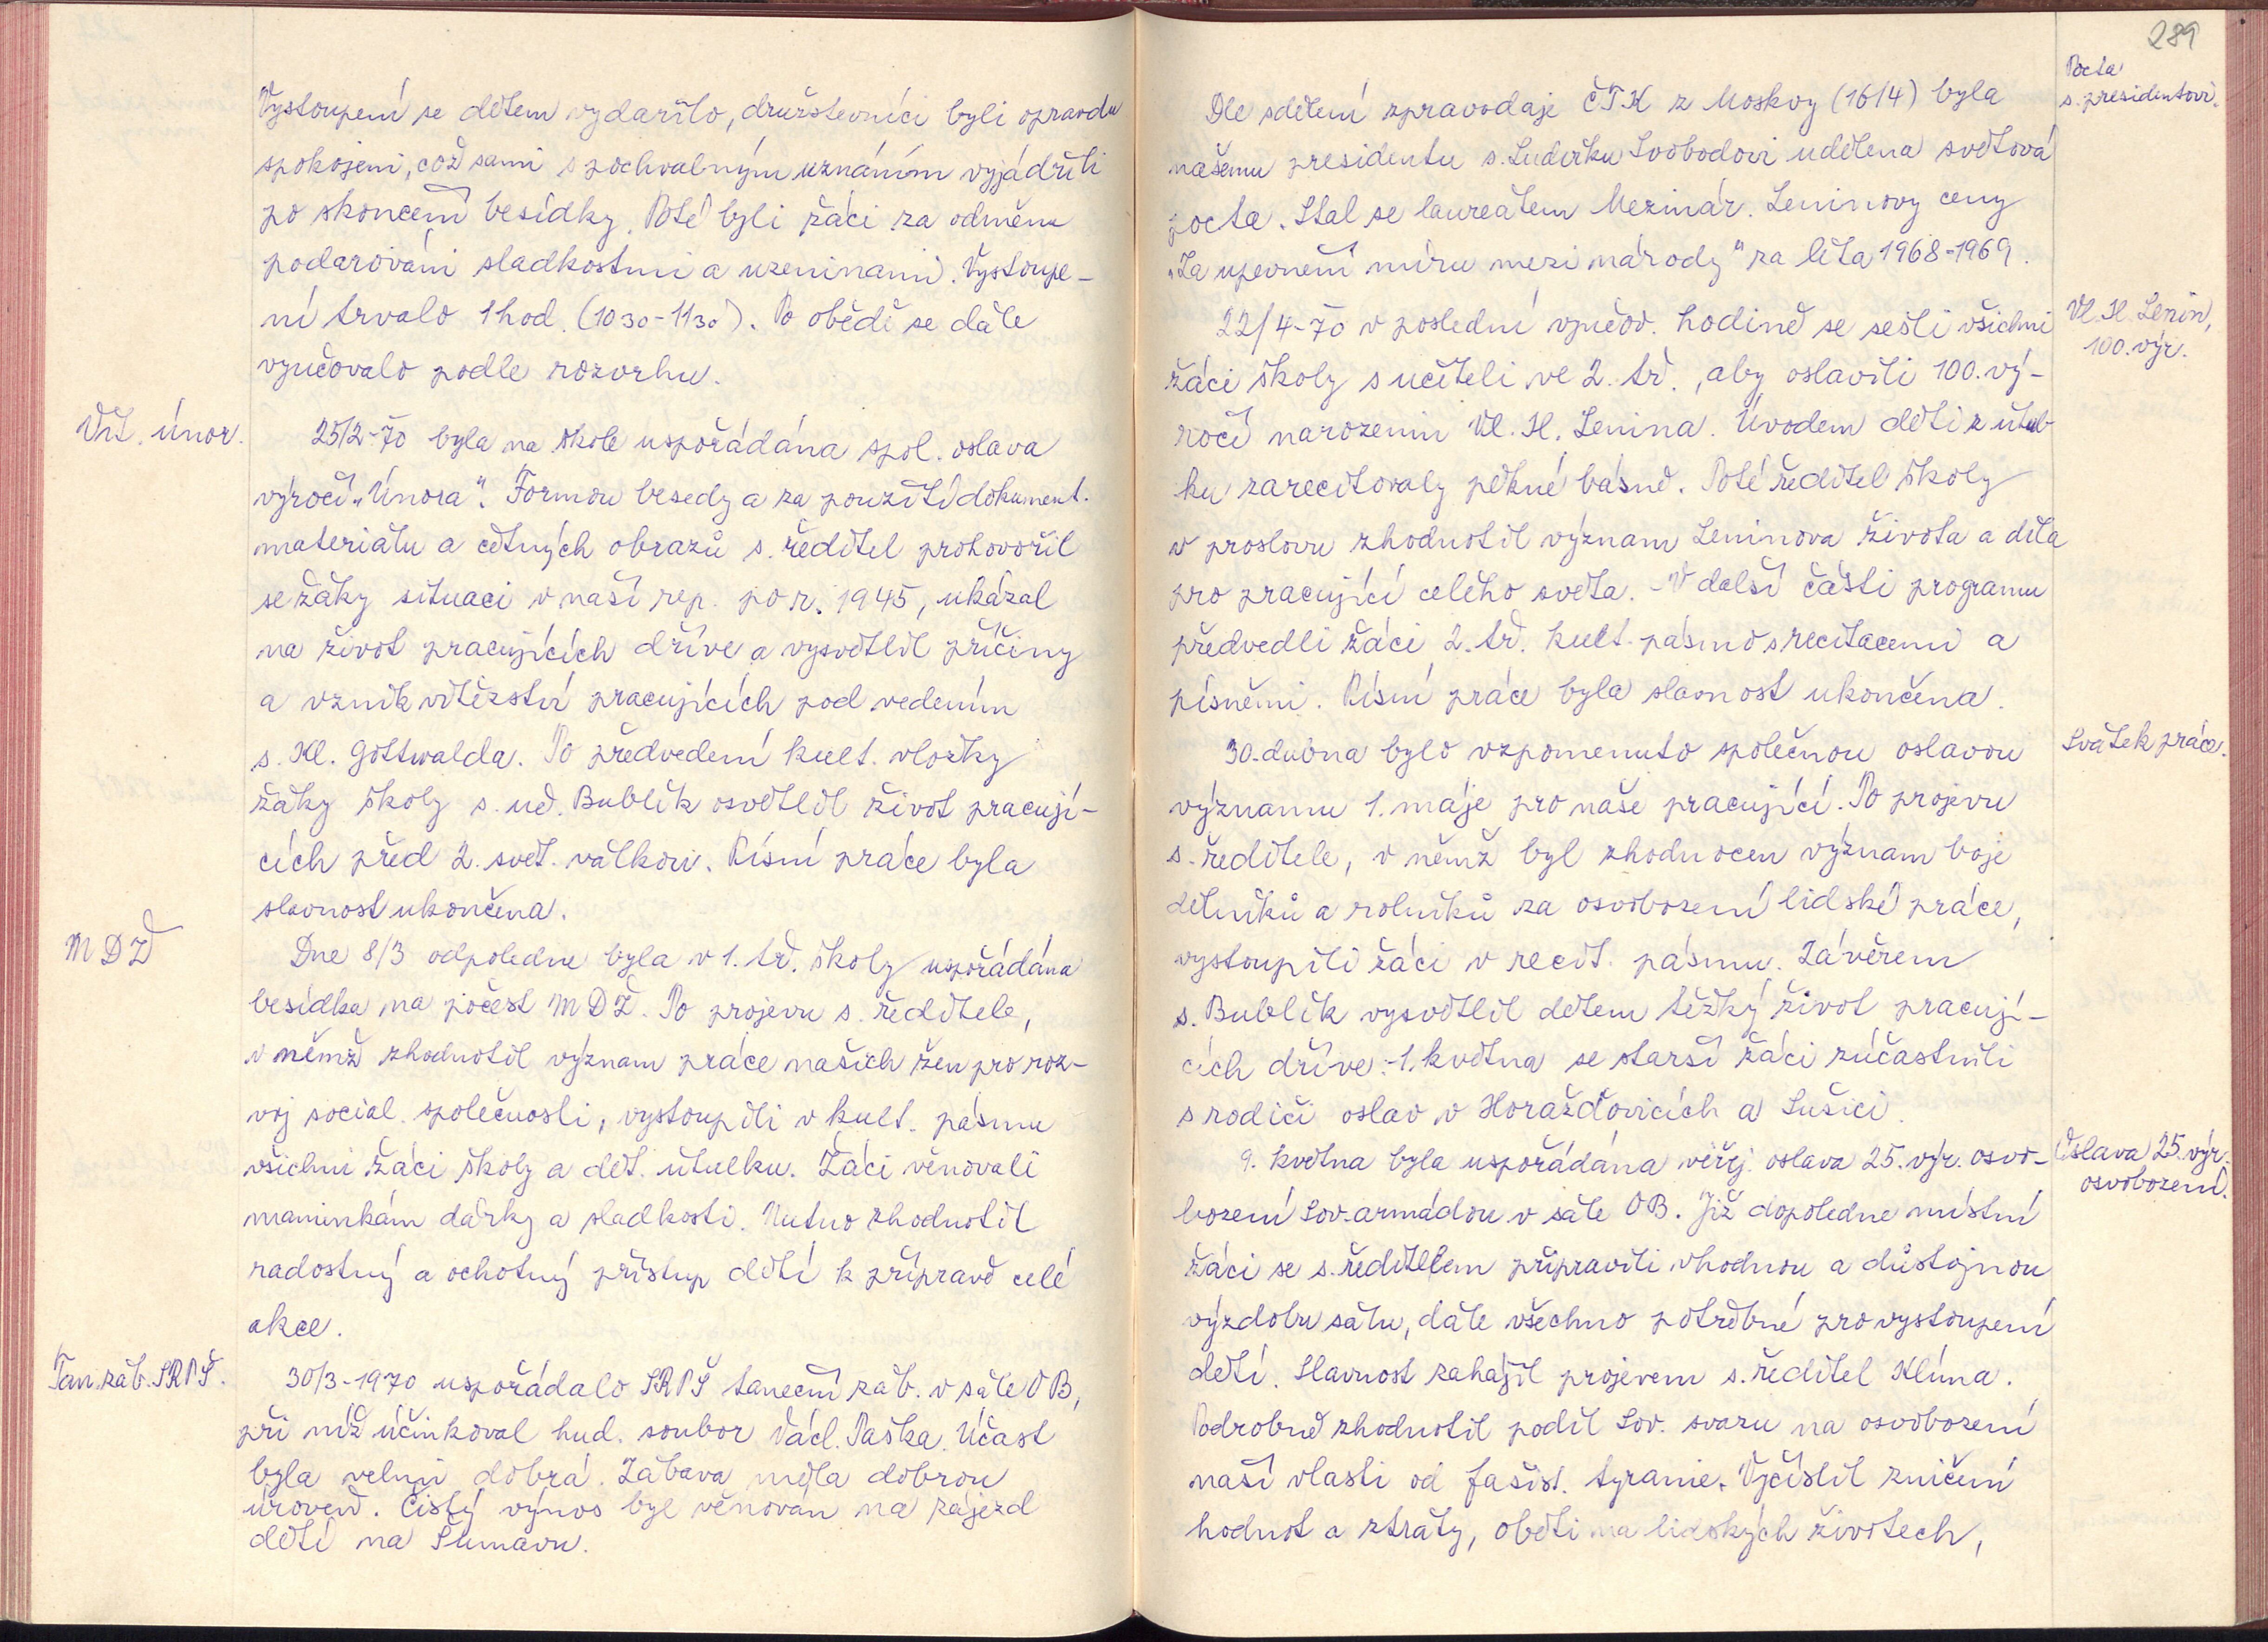 Vystoupení se dětem vydařilo, družstevníci byli opravdu
spokojeni, což sami s pochvalným uznáním vyjádřili
po skončení besídky. Poté byli žáci za odměnu
podarováni sladkostmi a uzeninami. Vystoupe-
ní trvalo 1 hod. (10 30 - 11 30). Po obědě se dále
vyučovalo podle rozvrhu.
Vít. únor.
25/2-70 byla na škole uspořádána spol. oslava
výročí „Února". Formou besedy a za použití dokument.
materiálu a četných obrazů s. ředitel prohovořil
se žáky situaci v naší rep. po r. 1945, ukázal
na život pracujících dříve a vysvětlil příčiny
a vznik vítězství pracujících pod vedením
s. Kl. Gottwalda. Po předvedení kult. vložky
žáky školy s. uč. Bublík osvětlil život pracují-
cích před 2. svět. válkou. Písní práce byla
slavnost ukončena.
MDŽ
Dne 8/3 odpoledne byla v 1. tř. školy uspořádána
besídka na počest MDŽ. Po projevu s. ředitele,
v němž zhodnotil význam práce našich žen pro roz-
voj social. společnosti, vystoupili v kult. pásmu
všichni žáci školy a dět. útulku. Žáci věnovali
maminkám dárky a sladkosti. Nutno zhodnotit
radostný a ochotný přístup dětí k přípravě celé
akce.
Tan. záb. SRPŠ.
30/3-1970 uspořádalo SRPŠ taneční záb. v sále OB,
při níž účinkoval hud. soubor Václ. Paška. Účast
byla velmi dobrá. Zábava měla dobrou
úroveň. Čistý výnos byl věnován na zájezd
dětí na Šumavu.
289
Pocta
s. presidentovi.
Dle sdělení zpravodaje ČTK z Moskvy (16/4) byla
našemu presidentu s. Ludvíku Svobodovi udělena světová
pocta. Stal se laureátem Mezinár. Leninovy ceny
„Za upevnění míru mezi národy" za léta 1968-1969.
Vl. Il. Lenin,
100. výr.
22/4-70 v poslední vyučov. hodině se sešli všichni
žáci školy s učiteli ve 2. tř., aby oslavili 100. vý-
ročí narozenin Vl. Il. Lenina. Úvodem děti z útul-
ku zarecitovaly pěkné básně. Poté ředitel školy
v proslovu zhodnotil význam Leninova života a díla
pro pracující celého světa. - V další části programu
předvedli žáci 2. tř. kult. pásmo s recitacemi a
písněmi. Písní práce byla slavnost ukončena.
Svátek práce.
30. dubna bylo vzpomenuto společnou oslavou
významu 1. máje pro naše pracující. Po projevu
s. ředitele, v němž byl zhodnocen význam boje
dělníků a rolníků za osvobození lidské práce,
vystoupili žáci v recit. pásmu. Závěrem
s. Bublík vysvětlil dětem těžký život pracují-
cích dříve. - 1. května se starší žáci zúčastnili
s rodiči oslav v Horažďovicích a Sušici.
Oslava 25. výr.
osvobození.
9. května byla uspořádána veřej. oslava 25. výr. osvo-
bození Sov. armádou v sále OB. Již dopoledne místní
žáci se s. ředitelem připravili vhodnou a důstojnou
výzdobu sálu, dále všechno potřebné pro vystoupení
dětí. Slavnost zahájil projevem s. ředitel Klíma.
Podrobně zhodnotil podíl Sov. svazu na osvobození
naší vlasti od fašist. tyranie. Vyčíslil zničení
hodnot a ztráty, oběti na lidských životech,